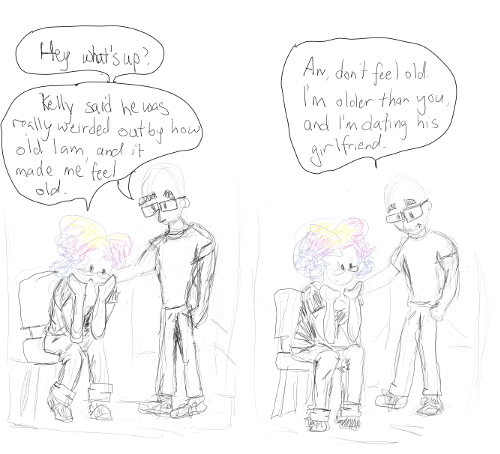 Hey what's up?
Kelly said he was
really weirded out by how
old I am and it
made me feel
old.
Aw, don't feel old.
I'm older than you,
and I'm dating his
girlfriend.